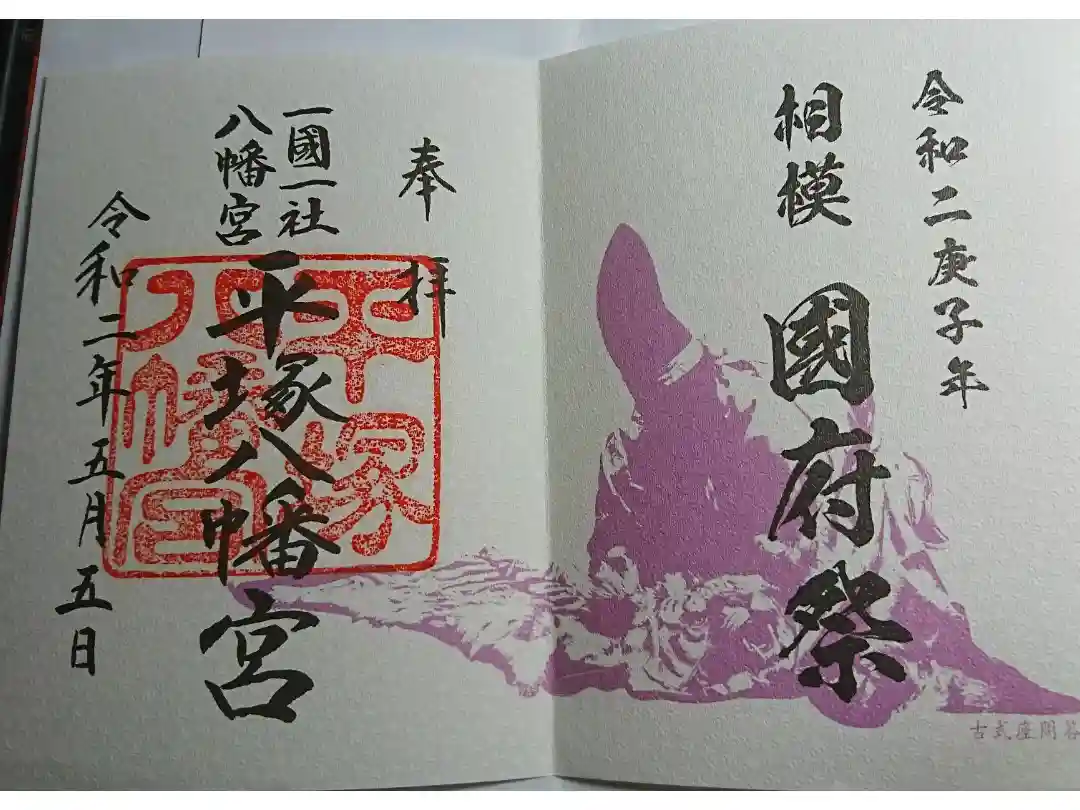 令和二庚子年
相模國府祭
古式座問答
奉拝
一國一社
八幡宮
平塚八幡宮
平塚
八幡宮
令和二年五月五日